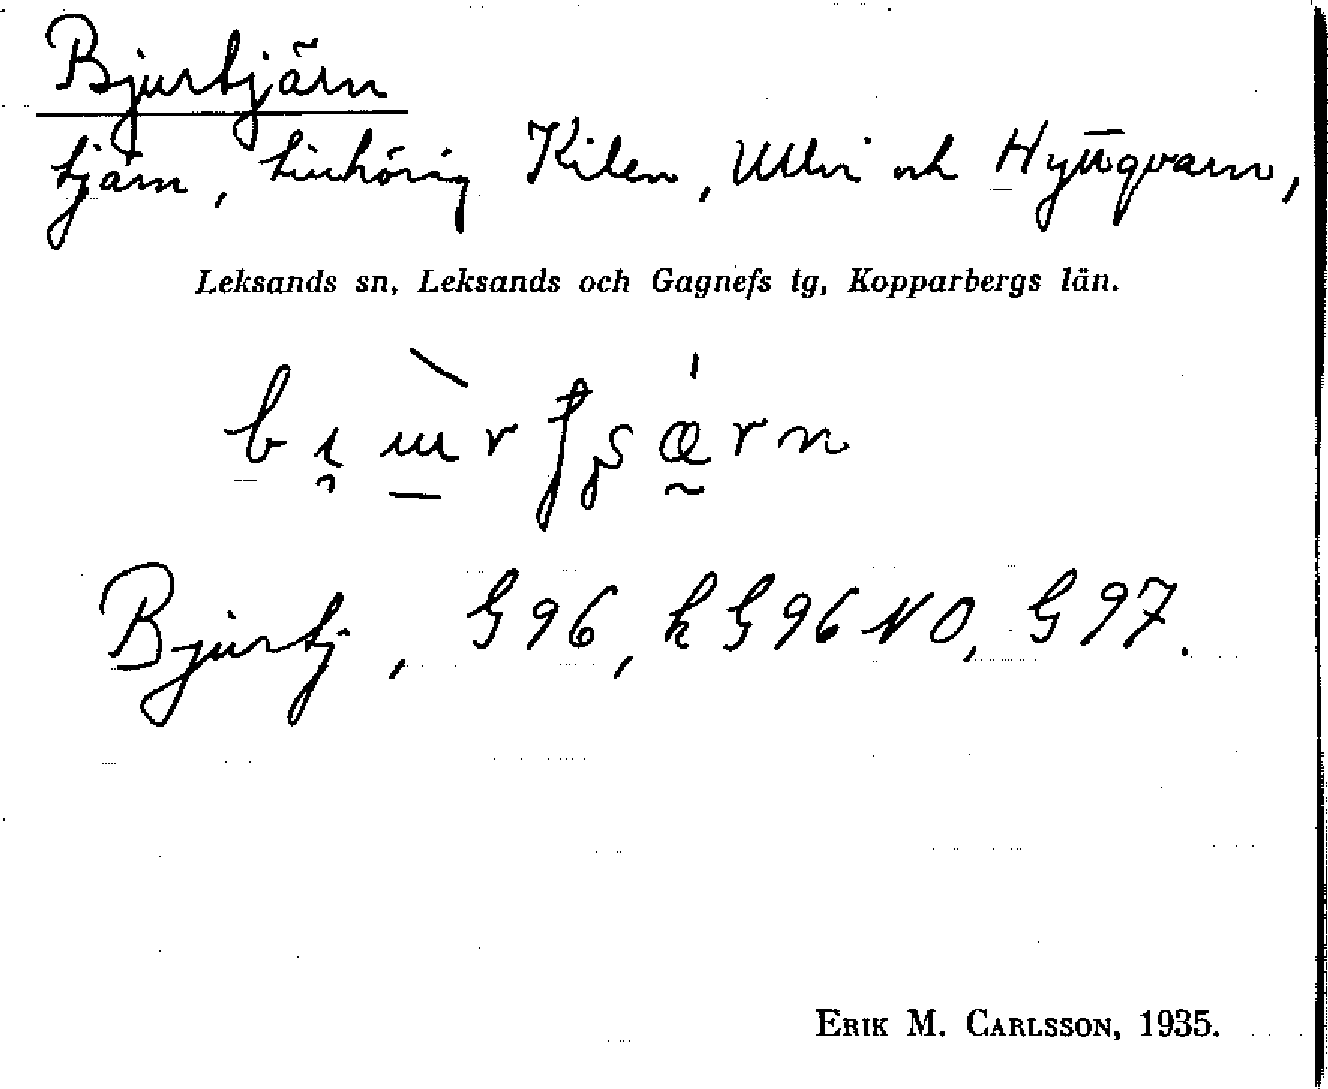 Bjurtjärn
tjärn, tillhörig Kilen, Ullvi och Hyttqvarn,
Leksands sn, Leksands och Gagnefs tg, Kopparbergs län.
Bjurtj, G96, k G96 NO, G97.
ERIK M. CARLSSON, 1935.